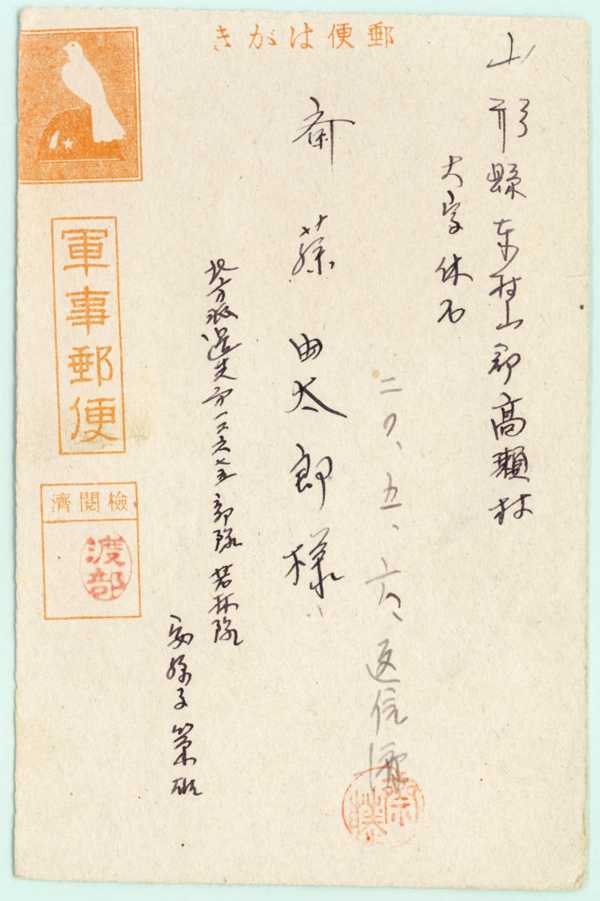 郵便はがき
山形縣东村山郡高瀬村
大字休石
斎藤由太郎様
二〇、五、六、返信済
北方派遣先第一二六七五部隊若林隊
我孫子
軍事郵便
檢閲濟
渡部
斎藤